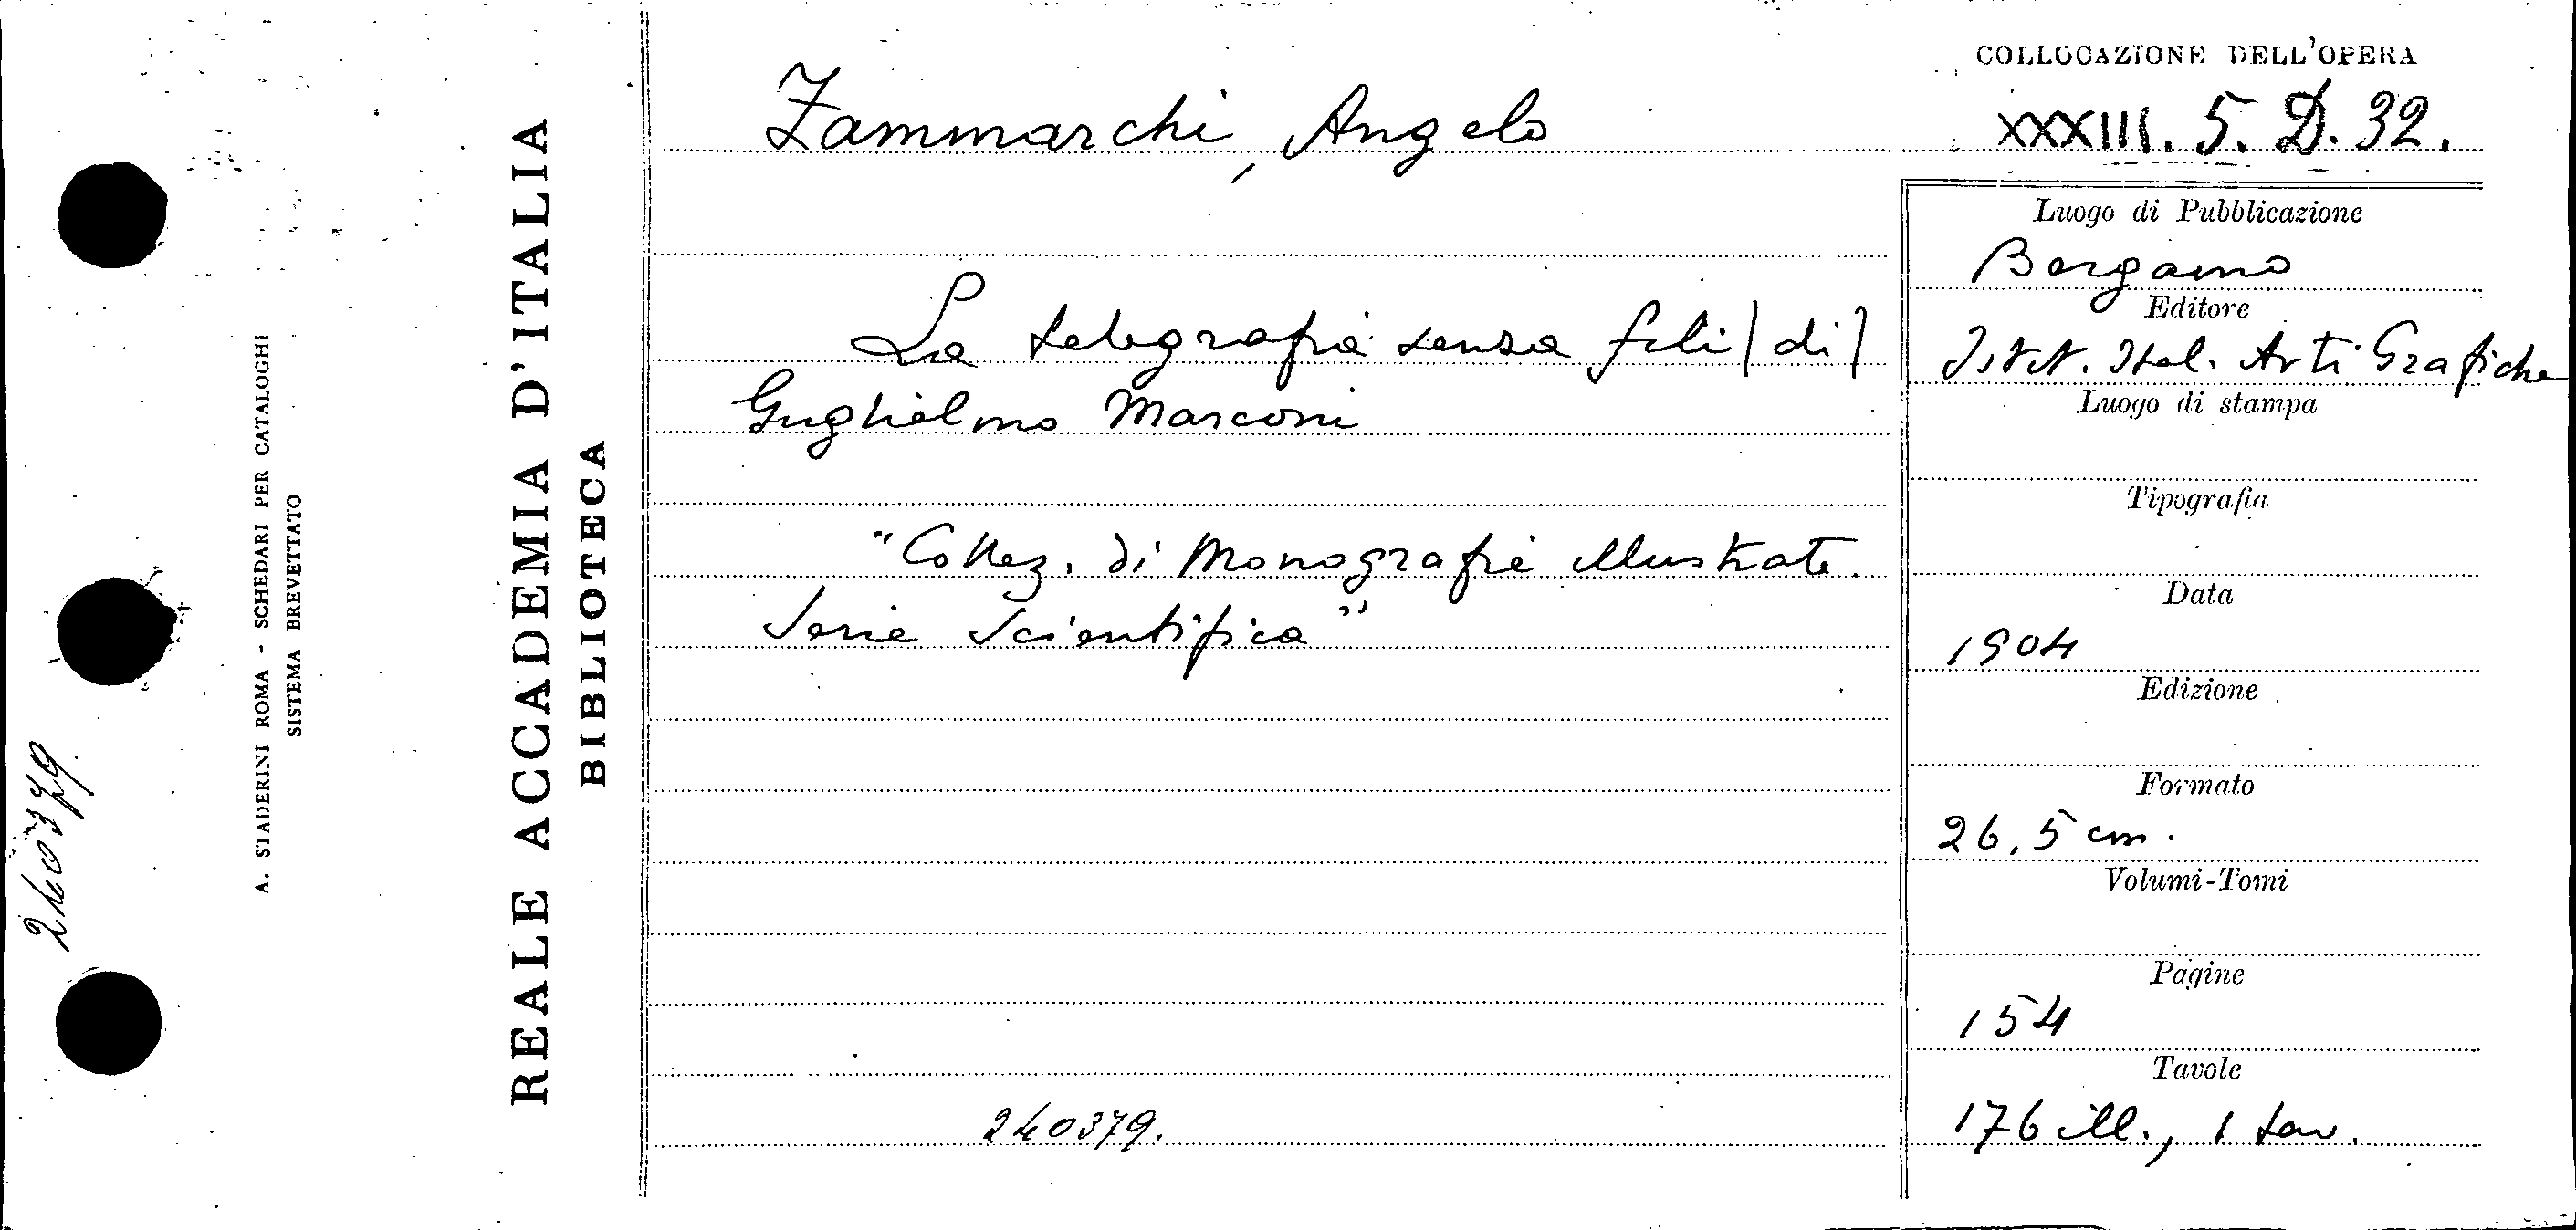 COLLOCAZIONE DELL'OPERA
XXXIII. 5. D. 32.
Zammarchi, Angelo
La telegrafia senza fili | di |
Guglielmo Marconi
"Collez. di Monografie illustrate.
Serie Scientifica"
240379.
Luogo di Pubblicazione
Bergamo
Editore
Istit. Ital. Arti Grafiche
Luogo di stampa
Tipografia
Data
1904
Edizione
Formato
26,5 cm.
Volumi-Tomi
Pagine
154
Tavole
176 ill., 1 tav.
REALE ACCADEMIA D'ITALIA
BIBLIOTECA
A. STADERINI ROMA - SCHEDARI PER CATALOGHI
SISTEMA BREVETTATO
240379